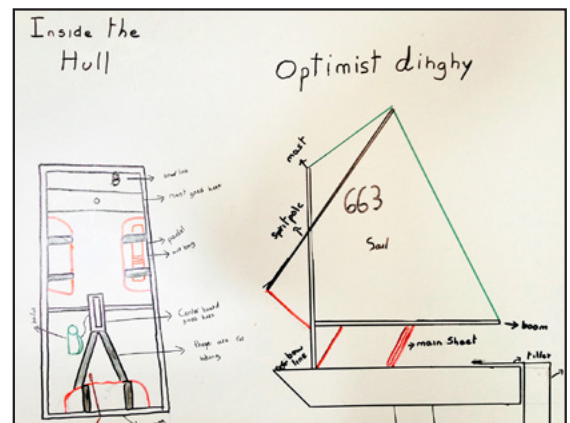 Inside the
Hull
Optimist dinghy
bow line
mast goes here
paddle
air bag
Center board
goes here
bailer
These are for
hiking
mast
sprit pole
663
Sail
boom
main sheet
bow
line
tiller